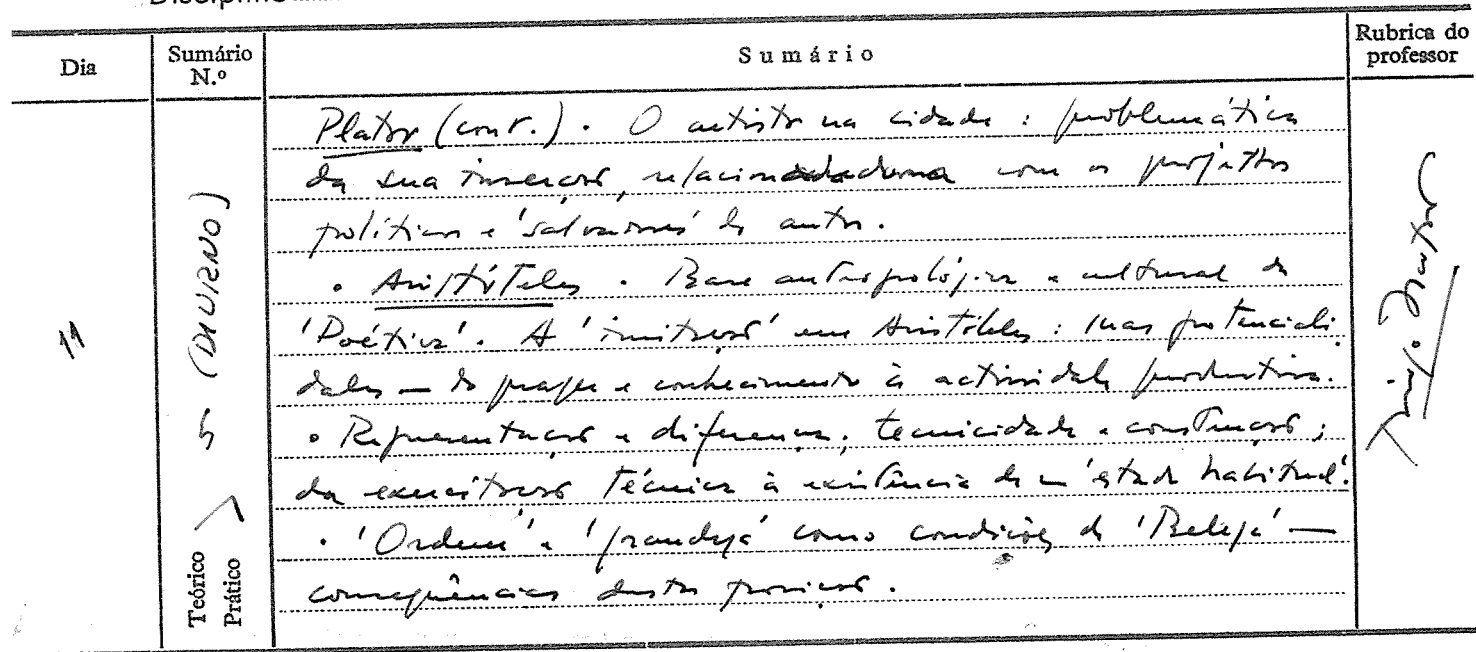 Disciplina
Dia
Sumário N.º
Sumário
Rubrica do professor
11
5 (DIURNO)
Teórico
Prático
Platão (cont.). O artista na cidade: problemática
da sua inserção, relacionada com os projettos
políticos e 'salvadores' do autor.
• Aristóteles. Base antropológica e cultural da
'Poética'. A 'imitação' em Aristóteles: suas potenciali
dades — do prazer e conhecimento à actividade produtiva.
• Representação e diferença; tecnicidade e construção;
da exercitação técnica à existência de um 'estado habitual'.
• 'Ordem' e 'grandeza' como condições da 'Beleza' —
consequências desta posição.